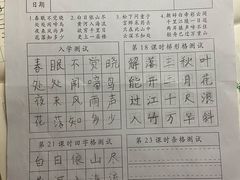 日期
1.春眠不觉晓
处处闻啼鸟
夜来风雨声
花落知多少
2.白日依山尽
黄河入海流
欲穷千里目
更上一层楼
3.松下问童子
言师采药去
只在此山中
云深不知处
4.
千里江陵一日还
两岸猿声啼不住
轻舟已过万重山
入学测试
春眠不觉晓
处处闻啼鸟
夜来风雨声
花落知多少
第18课时梯形格测试
解落三秋叶
能开二月花
过江千尺浪
入竹万竿斜
第21课时田字格测试
白日依山尽
第23课时条格测试